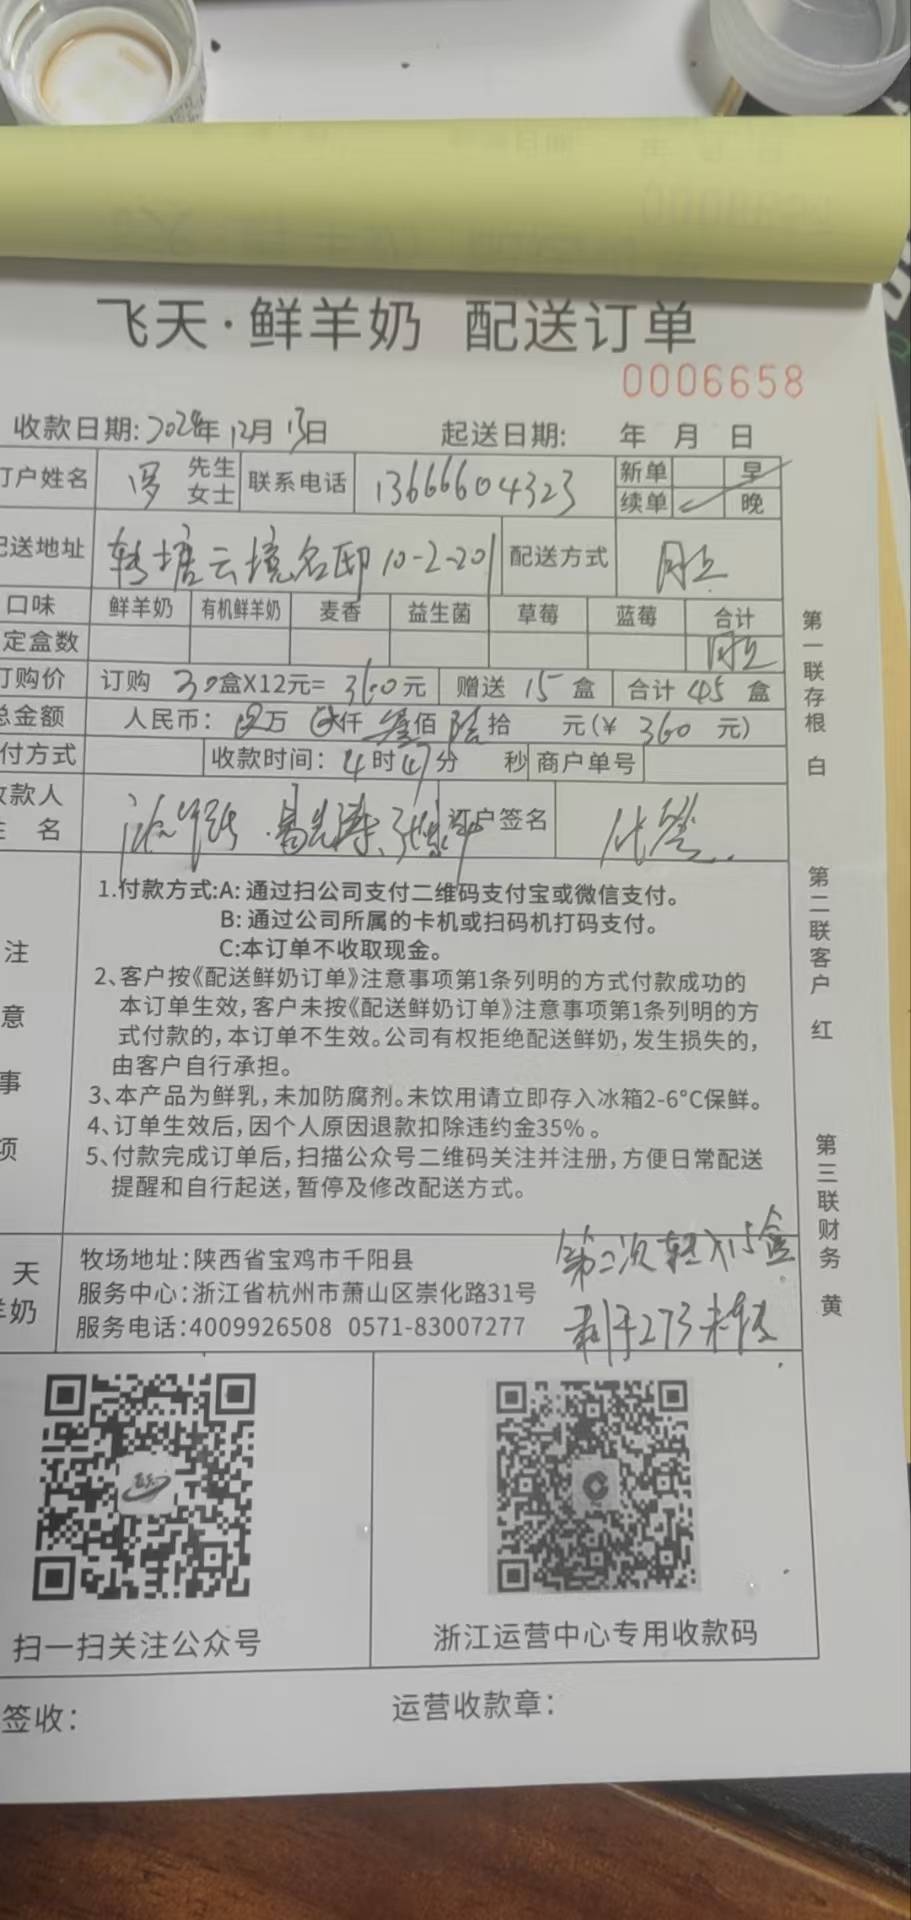 飞天·鲜羊奶 配送订单
0006658
收款日期: 2024年12月13日 起送日期: 年 月 日
订户姓名 罗 先生 女士 联系电话 13666604323 新单 早 续单 ✓ 晚
配送地址 转塘云境名邸10-2-201 配送方式 同上
口味 鲜羊奶 有机鲜羊奶 麦香 益生菌 草莓 蓝莓 合计
定盒数 同上
订购价 订购 30盒X12元= 360元 赠送 15 盒 合计 45 盒
总金额 人民币: 万 仟 叁佰 陆拾 元(¥ 360 元)
付方式 收款时间: 4时47分 秒 商户单号
收款人
姓 名 订户签名 代签
注
意
事
项
1.付款方式:A: 通过扫公司支付二维码支付宝或微信支付。
B: 通过公司所属的卡机或扫码机打码支付。
C:本订单不收取现金。
2、客户按《配送鲜奶订单》注意事项第1条列明的方式付款成功的
本订单生效,客户未按《配送鲜奶订单》注意事项第1条列明的方
式付款的,本订单不生效。公司有权拒绝配送鲜奶,发生损失的,
由客户自行承担。
3、本产品为鲜乳,未加防腐剂。未饮用请立即存入冰箱2-6°C保鲜。
4、订单生效后,因个人原因退款扣除违约金35%。
5、付款完成订单后,扫描公众号二维码关注并注册,方便日常配送
提醒和自行起送,暂停及修改配送方式。
天
羊奶
牧场地址:陕西省宝鸡市千阳县
服务中心:浙江省杭州市萧山区崇化路31号
服务电话:4009926508 0571-83007277
第二次转入15盒
剩于273未转
扫一扫关注公众号
浙江运营中心专用收款码
签收:
运营收款章:
第一联存根 白
第二联客户 红
第三联财务 黄